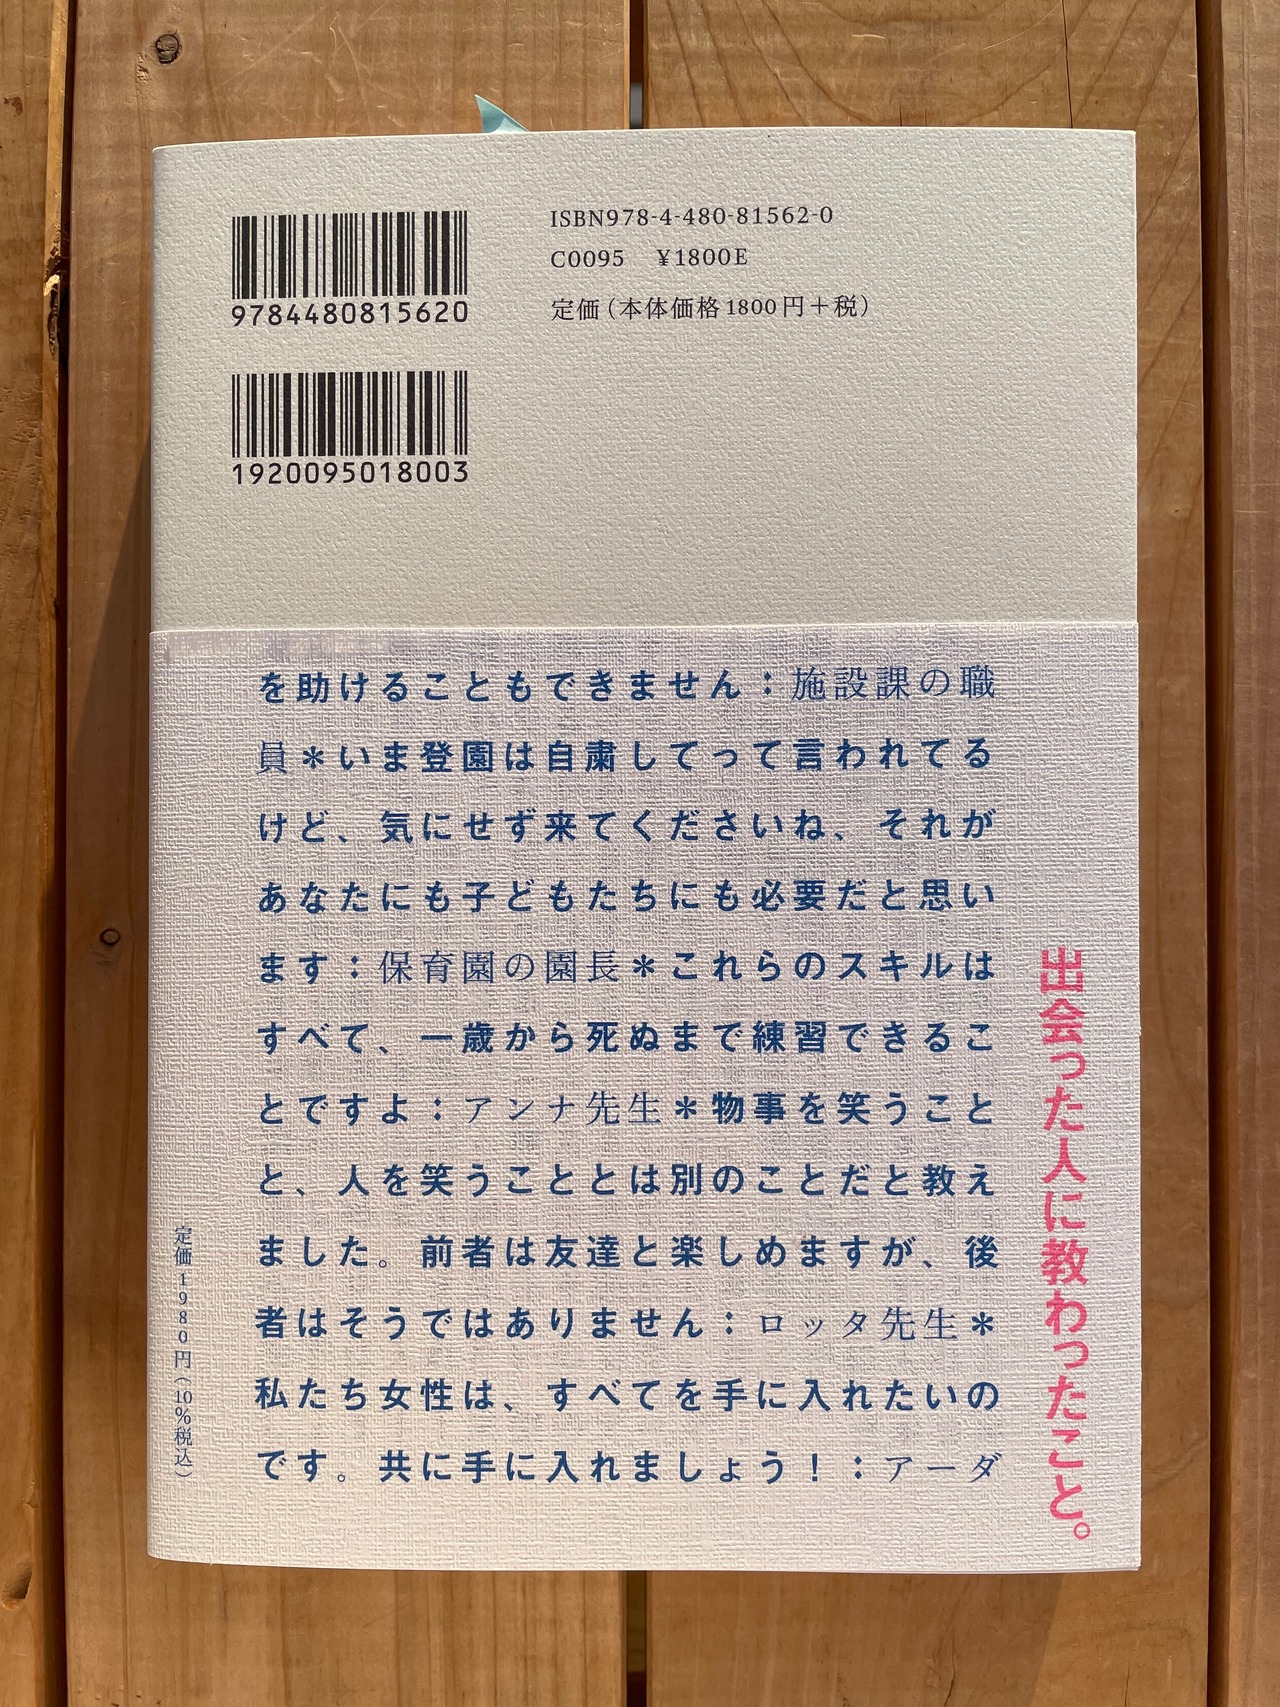 9784480815620
1920095018003
ISBN978-4-480-81562-0
C0095 ¥1800E
定価(本体価格1800円+税)
を助けることもできません：施設課の職
員＊いま登園は自粛してって言われてる
けど、気にせず来てくださいね、それが
あなたにも子どもたちにも必要だと思い
ます：保育園の園長＊これらのスキルは
すべて、一歳から死ぬまで練習できるこ
とですよ：アンナ先生＊物事を笑うこと
と、人を笑うこととは別のことだと教え
ました。前者は友達と楽しめますが、後
者はそうではありません：ロッタ先生＊
私たち女性は、すべてを手に入れたいの
です。共に手に入れましょう！：アーダ
出会った人に教わったこと。
定価1980円(10%税込)